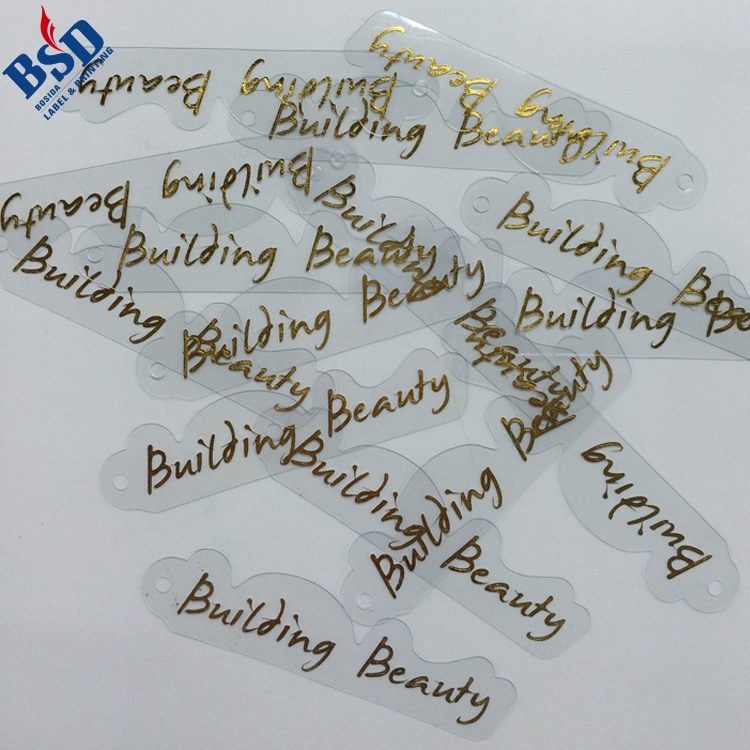 BSD
BOSIDA
LABEL & PRINTING
Building Beauty
Building Beauty
Building Beauty
Building Beauty
Building Beauty
Building
Building Be
Building Be
Building Beauty
Building Beauty
Building Beauty
Building Beauty
Building Beauty
Building Beauty
Building Beauty